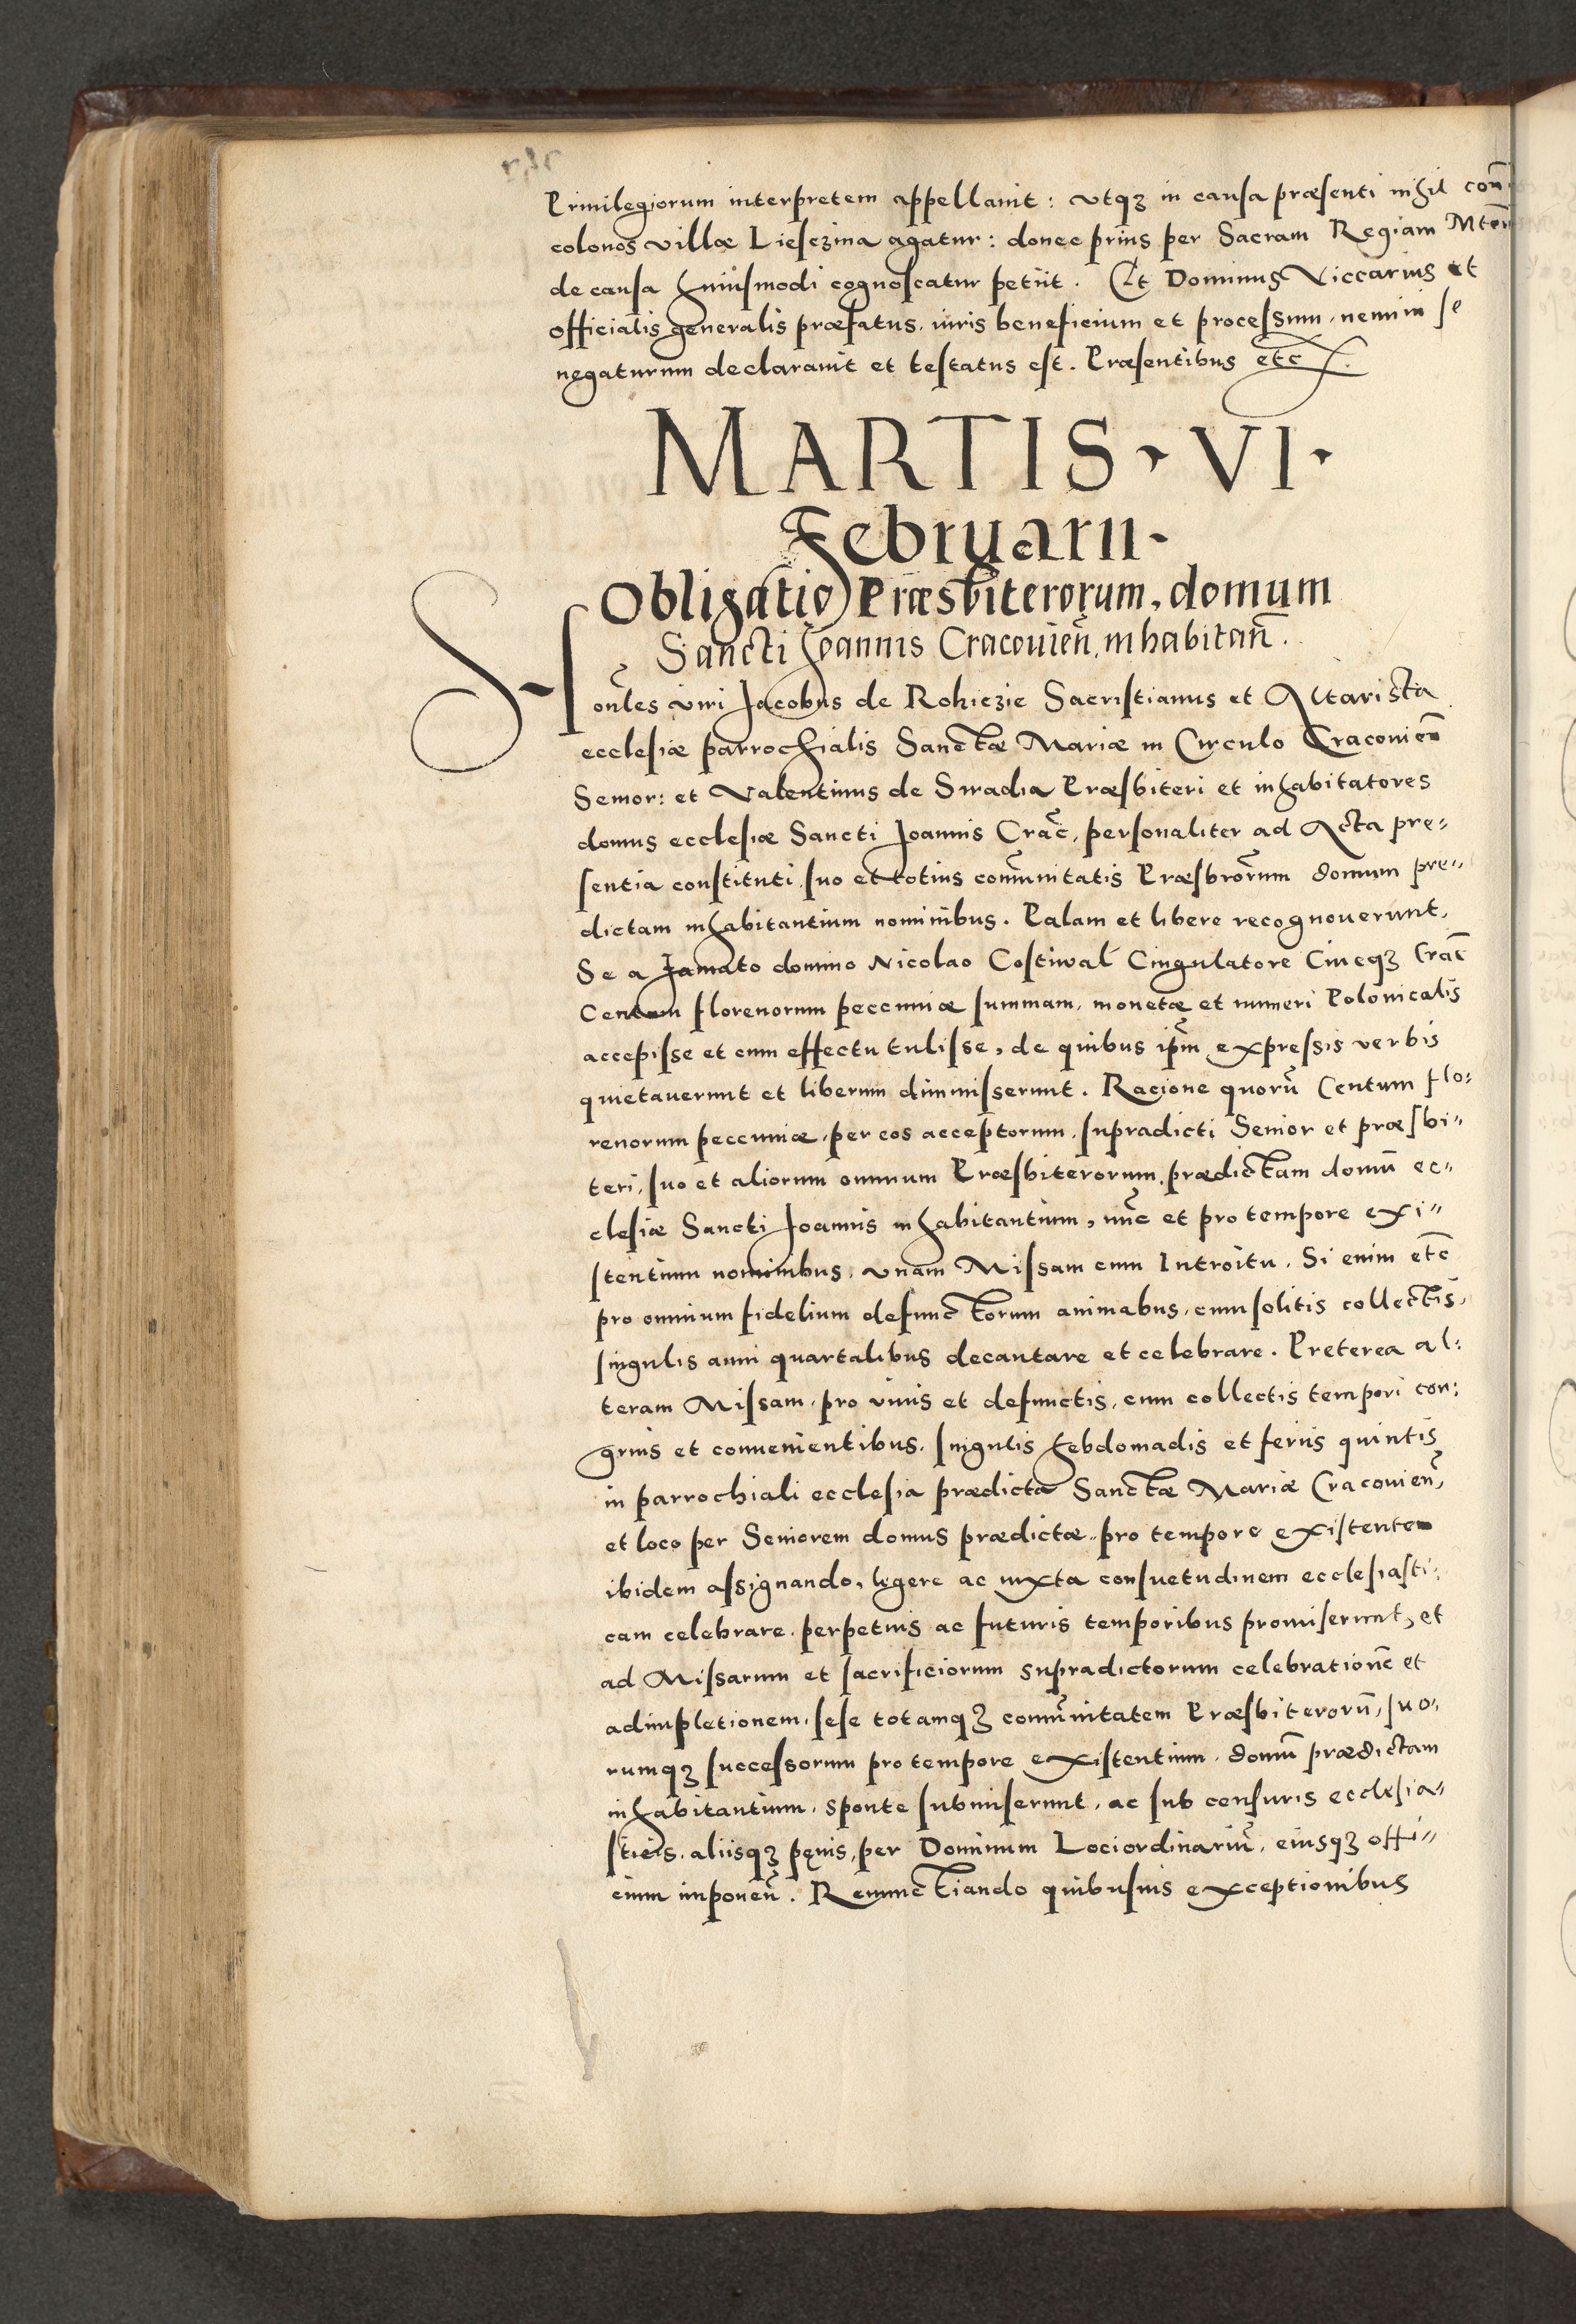 Priuilegiorum interpretem appellauit: vtqꝫ in causa præsenti nihil con̄
colonos villæ Liesczina agatur: donec prius per Sacram Regiam Mtem̄
de causa huiusmodi cognoscatur petiit. Et Dominus Viccarius et
officialis generalis præfatus, iuris beneficium et processum, nemini se
negaturum declarauit et testatus est. Præsentibus etc
MARTIS · VI ·
Februarii ·
Obligatio Præsbiterorum, domum
Sancti Joannis Cracouien̄, inhabitan̄.
Hon̄les viri Jacobus de Rohiczie Sacristianus et Altarista
ecclesiæ parrochialis Sanctæ Mariæ in Circulo Cracouien̄
Senior: et Valentinus de Siradia Præsbiteri et inhabitatores
domus ecclesiæ Sancti Joannis Crac̄, personaliter ad Acta pre=
sentia constituti, suo et totius com̄unitatis Præsbr̄orum domum pre=
dictam inhabitantium nominibus. Palam et libere recognouerunt,
Se a famato domino Nicolao Costiwal Cingulatore Ciueqꝫ Crac̄
Centum florenorum peccuniæ summam, monetæ et numeri Polonicalis
accepisse et cum effectu tulisse, de quibus ip̄m expressis verbis
quietauerunt et liberum dimmisserunt. Racione quorū Centum flo=
renorum peccuniæ, per eos acceptorum, supradicti Senior et præsbi=
teri, suo et aliorum omnium Præsbiterorum, prædictam domū ec=
clesiæ Sancti Joannis inhabitantium, nūc et pro tempore exi=
stentium nominibus, vnam Missam cum Introitu. Si enim etc̄
pro omnium fidelium defunctorum animabus, cum solitis collectis,
singulis anni quartalibus decantare et celebrare. Preterea al=
teram Missam, pro viuis et defunctis, cum collectis tempori con=
gruis et conuenientibus, singulis hebdomadis et feriis quintis
in parrochiali ecclesia prædicta Sanctæ Mariæ Cracouien̄,
et loco per Seniorem domus prædictæ, pro tempore existentem
ibidem assignando, legere ac iuxta consuetudinem ecclesiasti=
cam celebrare, perpetuis ac futuris temporibus promiserunt, et
ad Missarum et sacrificiorum supradictorum celebrationē et
adimpletionem, sese totamqꝫ com̄unitatem Præsbiterorū, suo=
rumqꝫ successorum pro tempore existentium, domū prædictam
inhabitantium, sponte submiserunt, ac sub censuris ecclesia=
sticis, aliisqꝫ pęnis, per Dominum Lociordinariū, eiusqꝫ offi=
cium imponen̄. Renunctiando quibusuis exceptionibus